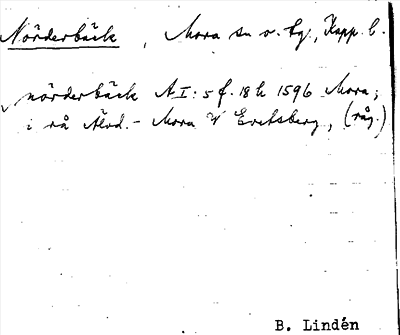 Nörderbäck, Mora sn o. tg., Kopp. l.
nörderbäck N I: 5 f. 18 h 1596 Mora;
i rå Älvd. - Mora V Evertsberg, (råg.)
B. Lindén